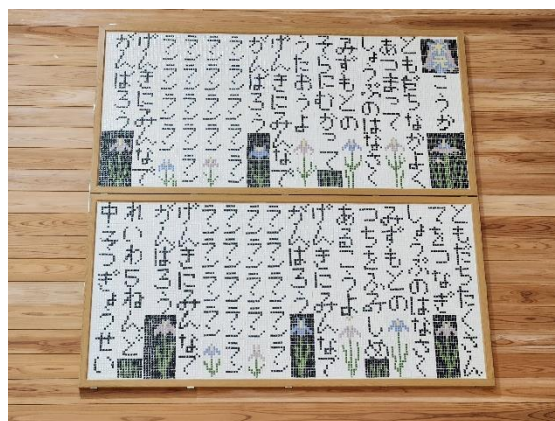 こうか
ともだちなかよく
あつまって
しょうぶのはなさく
みずもとの
そらにむかって
うたおうよ
げんきにみんなで
がんばろう
ランランランラン
ランランラン
ランランランラン
ランランラン
げんきにみんなで
がんばろう
ともだちたくさん
てをつなぎ
しょうぶのはなさく
みずもとの
つちをふみしめ
あるこうよ
げんきにみんなで
がんばろう
ランランランラン
ランランラン
ランランランラン
ランランラン
げんきにみんなで
がんばろう
れいわ5ねんど
中そつぎょうせい